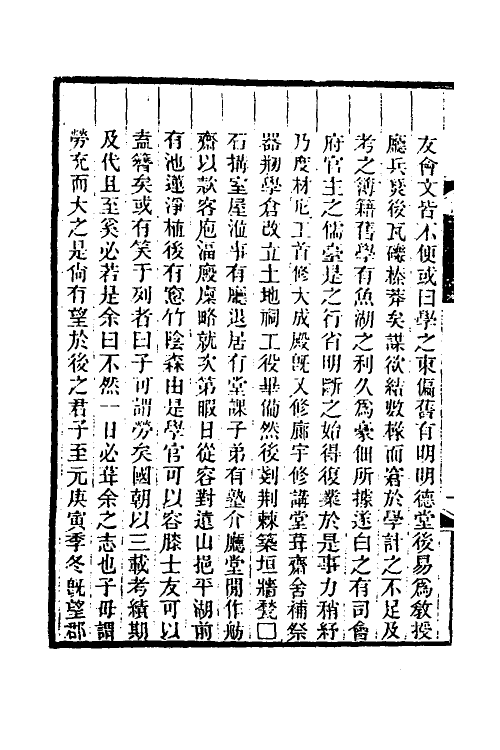 友會文皆不便或曰學之東偏舊有明明德堂後易爲敎授
廳兵燹後瓦礫榛莽矣謀欲結數椽而窘於學計之不足及
考之簿籍舊學有魚湖之利久爲豪佃所據遂白之有司會
府官主之儒臺是之行省明斷之始得復業於是事力稍紓
乃度材庀工首修大成殿旣又修廊宇修講堂葺齋舍補祭
器刱學倉改立土地祠工役畢備然後剗荆棘築垣牆甃□
石搆室屋涖事有廳退居有堂課子弟有塾介廳堂間作舫
齋以欵客庖湢廏廩略就次第暇日從容對遠山挹平湖前
有池蓮淨植後有窓竹陰森由是學官可以容膝士友可以
盍簪矣或有笑于列者曰子可謂勞矣國朝以三載考績期
及代且至奚必若是余曰不然一日必葺余之志也子毋謂
勞充而大之是尙有望於後之君子至元庚寅季冬旣望郡